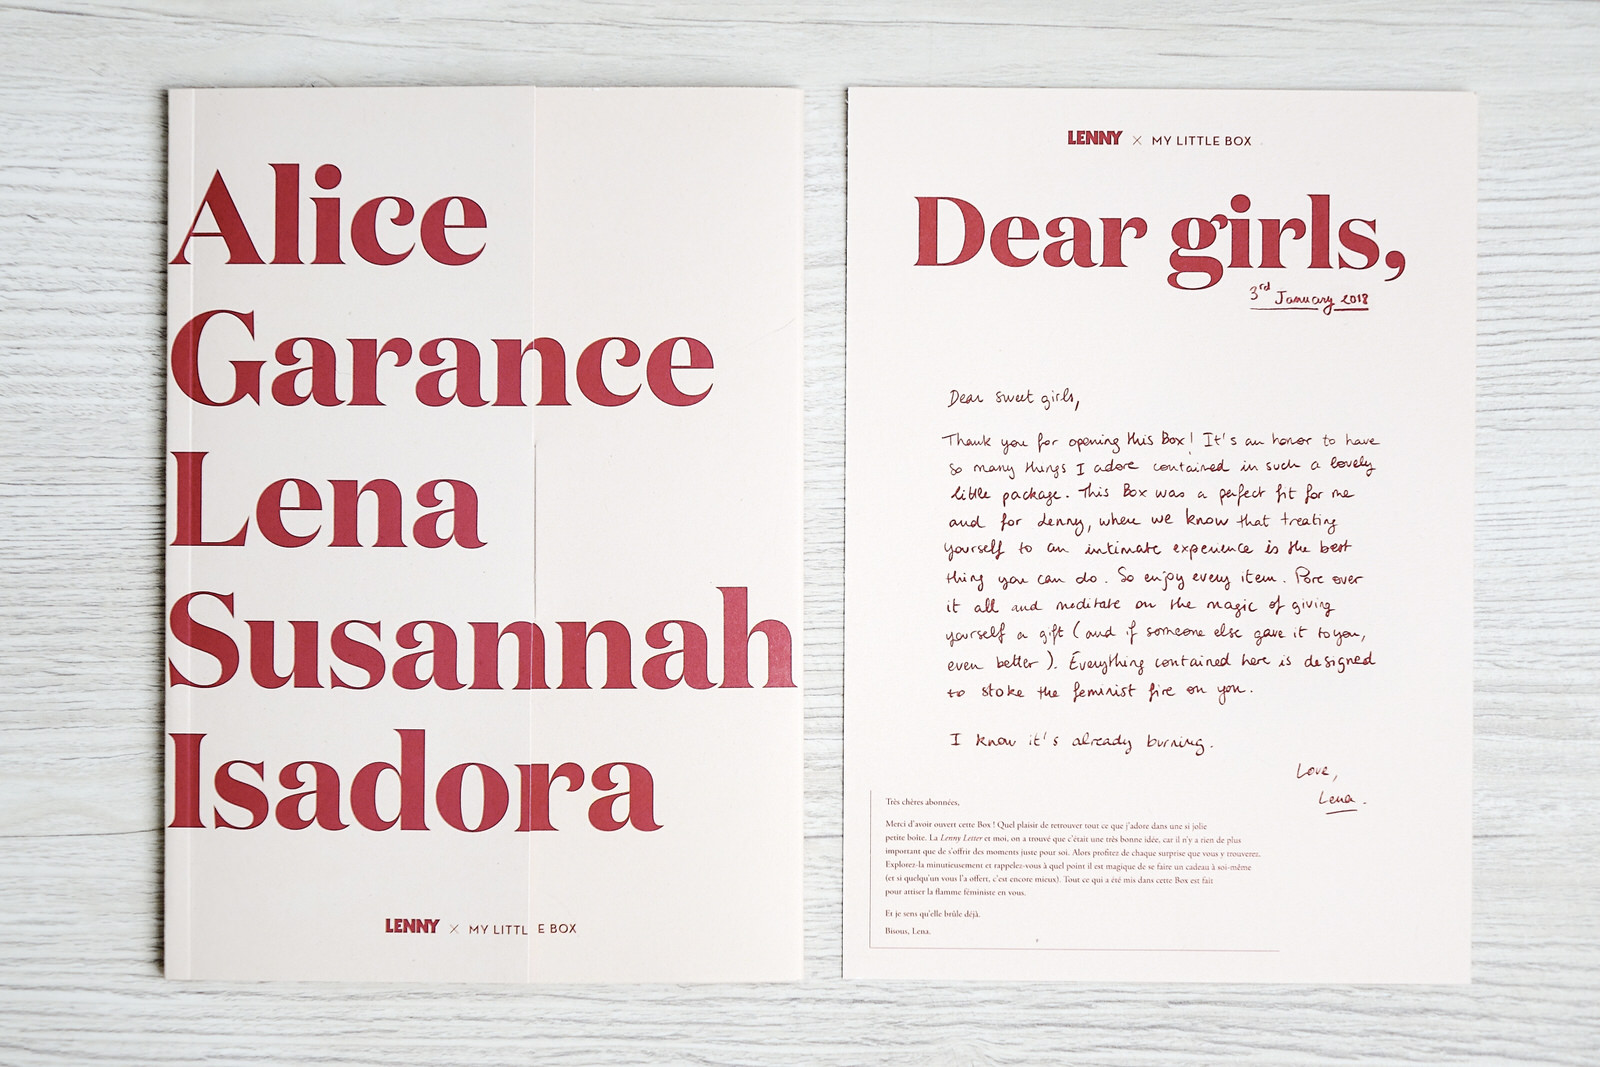 Alice
Garance
Lena
Susannah
Isadora
LENNY × MY LITTLE BOX
LENNY × MY LITTLE BOX
Dear girls,
3rd January 2018
Dear sweet girls,
Thank you for opening this Box! It's an honor to have
so many things I adore contained in such a lovely
little package. This Box was a perfect fit for me
and for Lenny, where we know that treating
yourself to an intimate experience is the best
thing you can do. So enjoy every item. Pore over
it all and meditate on the magic of giving
yourself a gift (and if someone else gave it to you,
even better). Everything contained here is designed
to stoke the feminist fire on you.
I know it's already burning.
Love,
Lena.
Très chères abonnées,
Merci d'avoir ouvert cette Box ! Quel plaisir de retrouver tout ce que j'adore dans une si jolie
petite boîte. La Lenny Letter et moi, on a trouvé que c'était une très bonne idée, car il n'y a rien de plus
important que de s'offrir des moments juste pour soi. Alors profitez de chaque surprise que vous y trouverez.
Explorez-la minutieusement et rappelez-vous à quel point il est magique de se faire un cadeau à soi-même
(et si quelqu'un vous l'a offert, c'est encore mieux). Tout ce qui a été mis dans cette Box est fait
pour attiser la flamme féministe en vous.
Et je sens qu'elle brûle déjà.
Bisous, Lena.